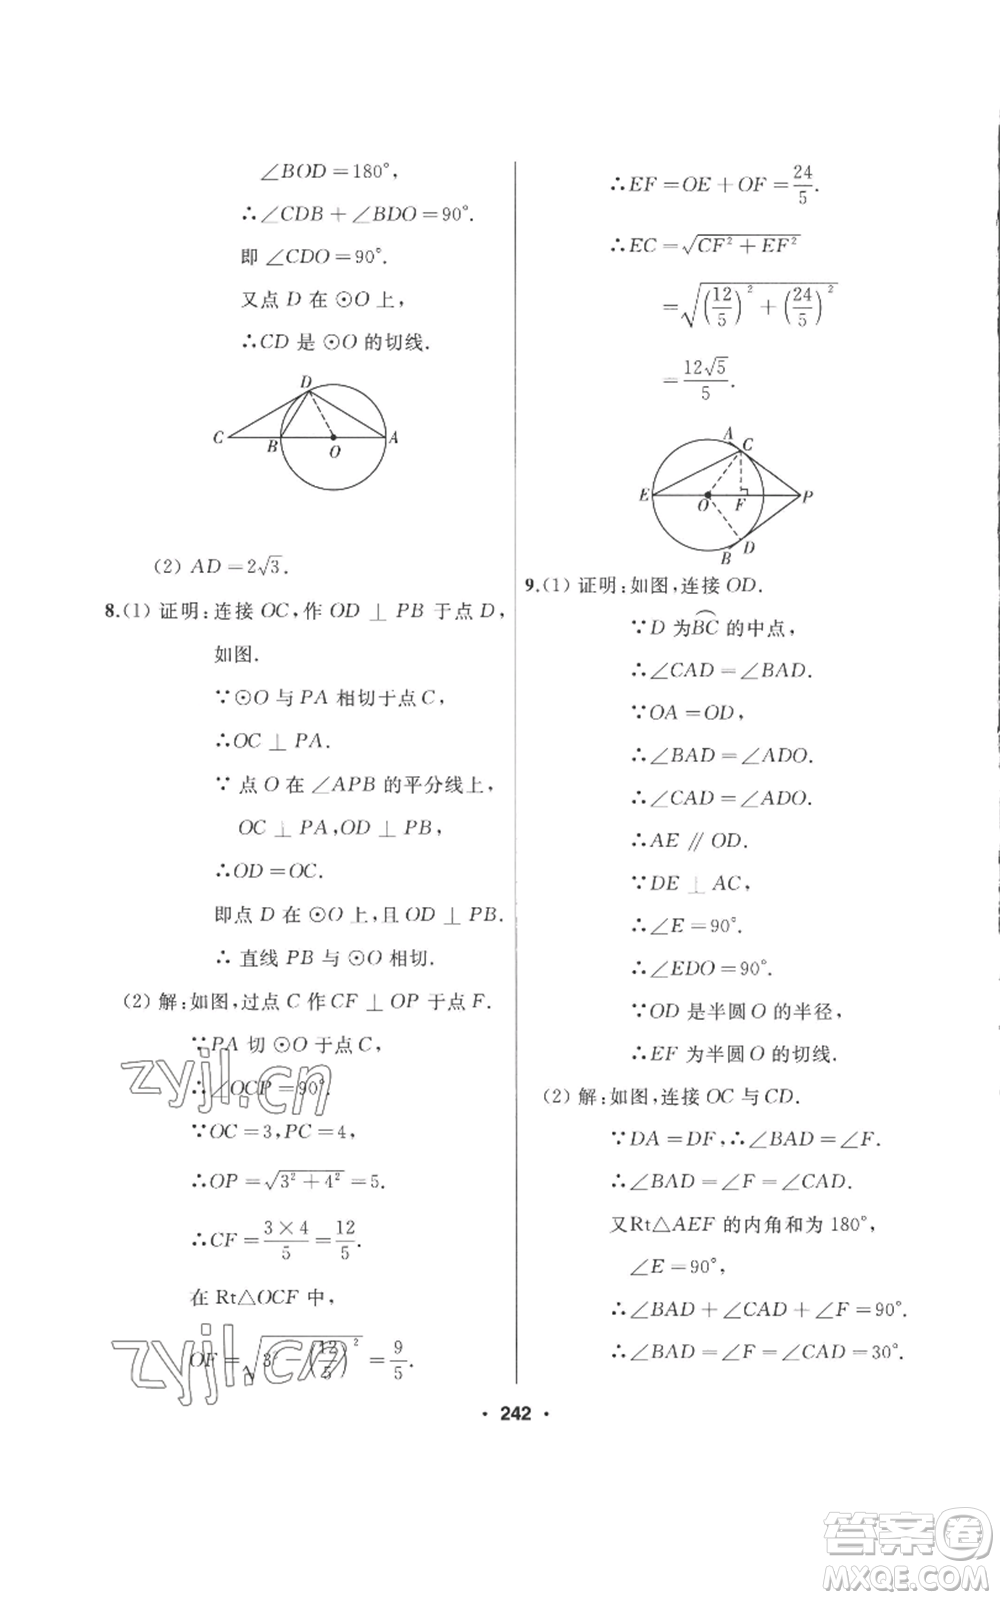 ∠BOD=180°,
∴∠CDB+∠BDO=90°.
即∠CDO=90°.
又点 D 在 ⊙O 上,
∴CD 是 ⊙O 的切线.
D
C B O A
(2) AD=2√3.
8.(1) 证明:连接 OC,作 OD ⊥ PB 于点 D,
如图.
∵⊙O 与 PA 相切于点 C,
∴OC ⊥ PA.
∵ 点 O 在 ∠APB 的平分线上,
OC ⊥ PA,OD ⊥ PB,
∴OD=OC.
即点 D 在 ⊙O 上,且 OD ⊥ PB.
∴ 直线 PB 与 ⊙O 相切.
(2) 解:如图,过点 C 作 CF ⊥ OP 于点 F.
∵PA 切 ⊙O 于点 C,
∴∠OCP=90°.
∵OC=3,PC=4,
∴OP=√(3²+4²)=5.
∴CF=(3×4)/5=12/5.
在 Rt△OCF 中,
OF=√(3²-(12/5)²)=9/5.
∴EF=OE+OF=24/5.
∴EC=√(CF²+EF²)
=√((12/5)²+(24/5)²)
=12√5/5.
A C
E O F P
B D
9.(1) 证明:如图,连接 OD.
∵D 为⌒BC 的中点,
∴∠CAD=∠BAD.
∵OA=OD,
∴∠BAD=∠ADO.
∴∠CAD=∠ADO.
∴AE ∥ OD.
∵DE ⊥ AC,
∴∠E=90°.
∴∠EDO=90°.
∵OD 是半圆 O 的半径,
∴EF 为半圆 O 的切线.
(2) 解:如图,连接 OC 与 CD.
∵DA=DF,∴∠BAD=∠F.
∴∠BAD=∠F=∠CAD.
又Rt△AEF 的内角和为 180°,
∠E=90°,
∴∠BAD+∠CAD+∠F=90°.
∴∠BAD=∠F=∠CAD=30°.
· 242 ·
zyjl.cn
zyjl.cn
答案卷
MXQE.COM